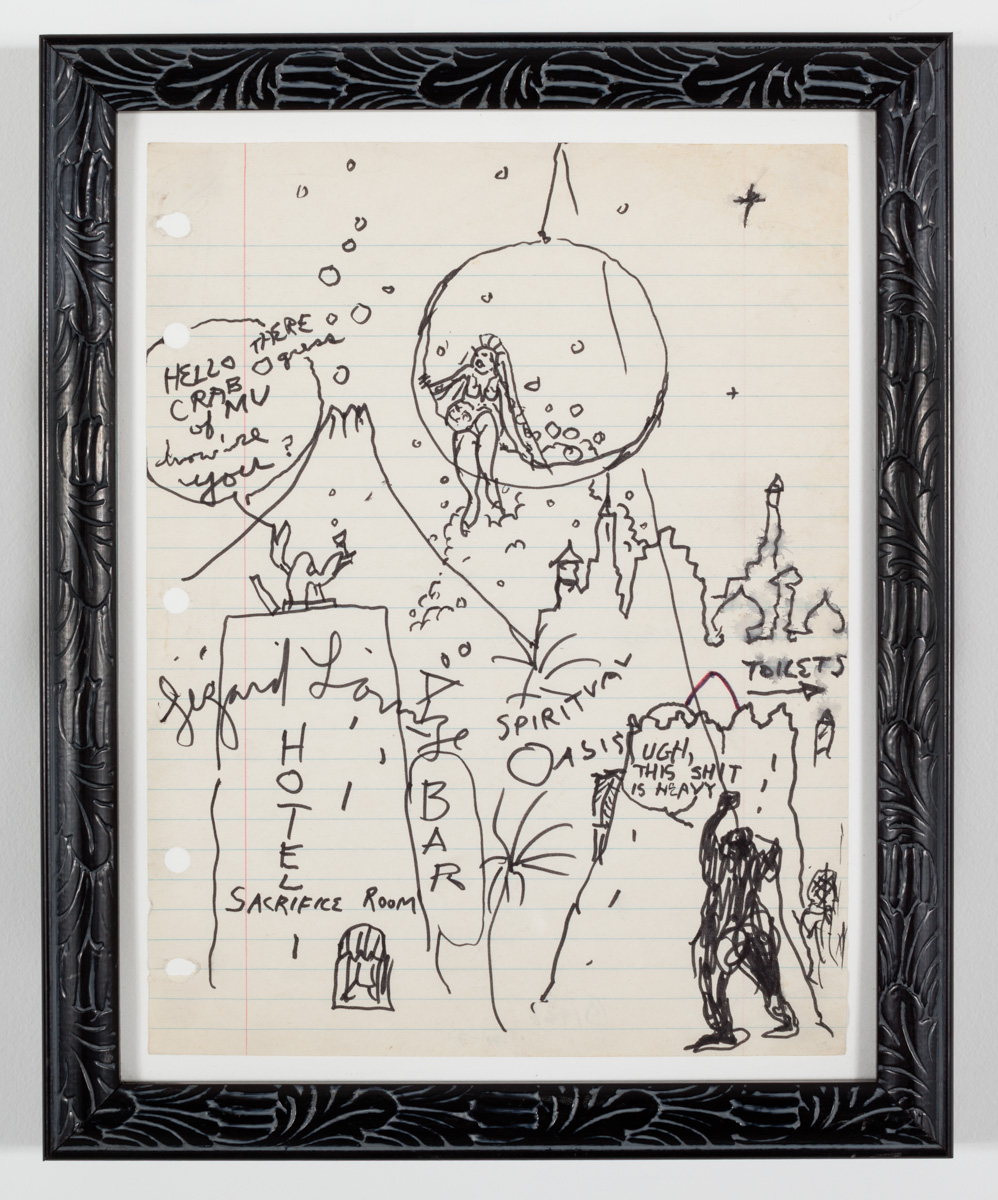 HELLO THERE
CRAB O guess
of MU
how're
you?
HOTEL
SACRIFICE ROOM
BAR
SPIRITUAL
OASIS
TOILETS
UGH,
THIS SHIT
IS HEAVY